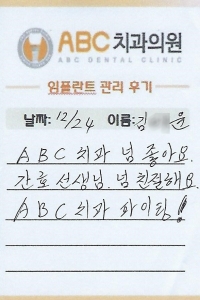 ABC 치과의원
ABC DENTAL CLINIC
임플란트 관리 후기
날짜: 12/24 이름: 김 윤
ABC 치과 넘 좋아요.
간호 선생님. 넘 친절해요.
ABC 치과 파이팅!